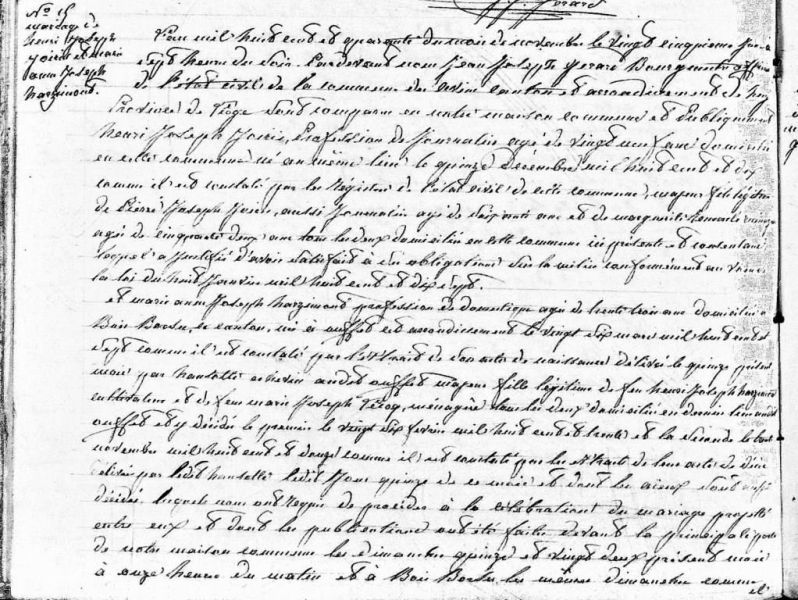 N° 15
mariage de
henri Joseph
et marie
anne Joseph
hazimond.
L'an mil huit cent et quarante du mois de novembre le vingt cinquieme jour a
sept heures du soir. Pardevant nous Jean Joseph Gerard Bourguemestre officier
de l'état civil de la commune de canton et arrondissement de huy
Province de Liége sont comparu en notre maison commune et Publiquement
henri Joseph profession de Journalier agé de vingt neuf ans domicilié
en cette commune né au meme lieu le quinze decembre mil huit cent et dix
comme il est constaté par les Régistres de l'état civil de cette commune, majeur fils légitime
de Pierre Joseph aussi Journalier agé de soixante ans et de marguerite
agée de cinquante deux ans tous les deux domiciliés en cette commune ici présents et consentant
lequel a justifié d'avoir satisfait à ses obligations sur la milice conformément au vœu de
la loi du huit Janvier mil huit cent et dix sept.
et marie anne Joseph hazimond profession de domestique agée de trente trois ans domiciliée a
Bois Borsu, ce canton, née a ouffet cet arrondissement le vingt six mars mil huit cent et
sept comme il est constaté par l'extrait de son acte de naissance délivré le quinze présent
mois par hansotte echevin audit ouffet majeure fille légitime de feu henri Joseph hazimond
et de feue marie Joseph ménagère tous les deux domiciliés en dernier lieu audit
ouffet et y décédés le premier le vingt six fevrier mil huit cent et trente et la seconde le
novembre mil huit cent et douze comme il est constaté par les extraits de leurs actes de décès
délivrés par ledit hansotte ledit Jour quinze de ce mois et dont les aieux sont aussi
décédés lesquels nous ont requis de proceder à la célébration du mariage projetté
entre eux et dont les publications ont été faites devant la principale porte
de notre maison commune les dimanches quinze et vingt deux présent mois
à onze heures du matin et à Bois Borsu les mêmes dimanches comme
il